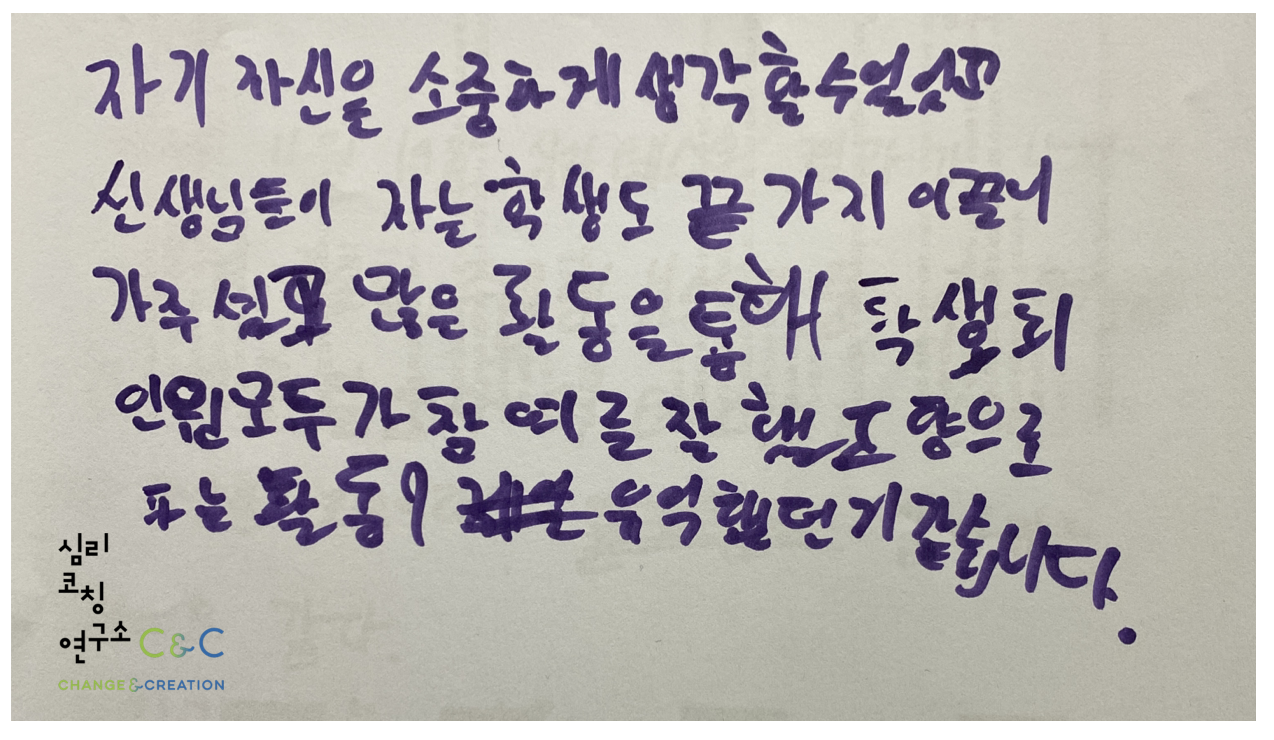 자기 자신을 소중하게 생각할 수 있었고
선생님들이 자는 학생도 끝가지 이끌니
가주셨고 많은 활동을 통해 학생
인원 모두가 참여를 잘
하는 활동이 유익했던거 같습니다.
심리
코칭
연구소 C&C
CHANGE&CREATION